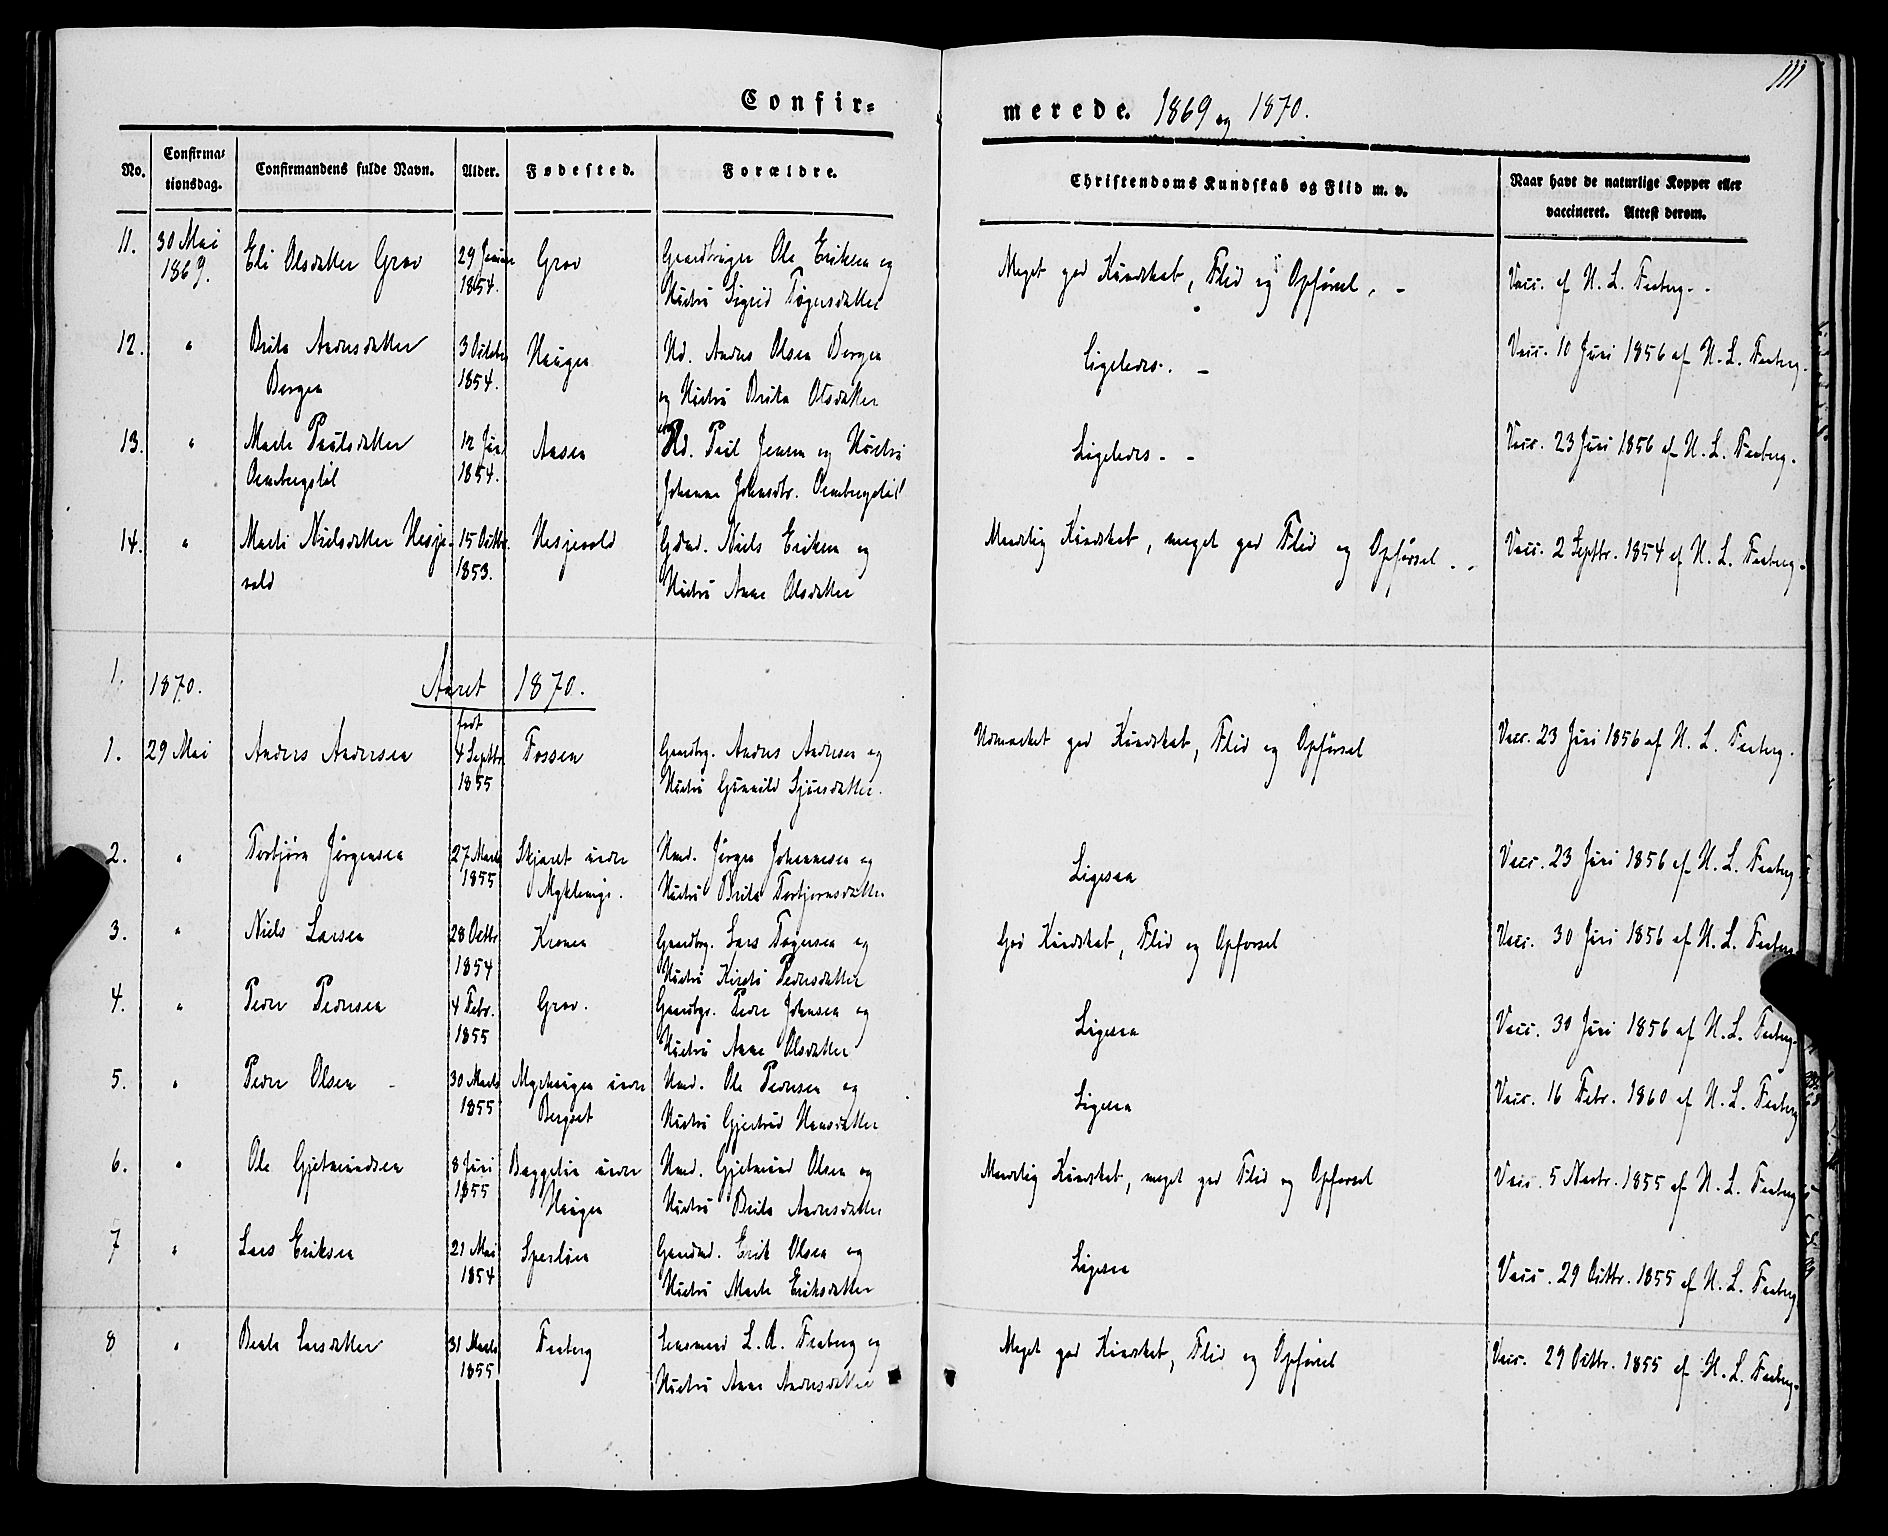 111
Confir-
merede. 1869 og 1870.
No.
Confirma-
tionsdag.
Confirmandens fulde Navn.
Alder.
Fødested.
Forældre.
Christendoms Kundskab og Flid m. v.
Naar havt de naturlige Kopper eller
vaccineret. Attest derom.
11. 30 Mai 1869. Eli Olsdatter Grov 29 Januar 1854. Grov
Gaardbruger Ole Eriksen og
Hustru Sigrid Tøgersdatter
Meget god Kundskab, Flid og Opførsel. -
Vacc. af H. L. Faaberg. -
12. " Brita Andersdatter
Bergen
3 October 1854. Haugen
Hd. Anders Olsen Bergen
og Hustru Brita Olsdatter
Ligeledes. -
Vacc. 10 Juni 1856 af H. L. Faaberg.
13. " Marte Paulsdatter
12 Jun 1854. Aasen
Hd. Paul Jensen og Hustru
Johanne Johnsdtr.
Ligeledes - -
Vacc. 23 Juni 1856 af H. L. Faaberg.
14. " Marti Nielsdatter Hesje-
vold
15 Octbr. 1853. Hesjevold
Gdmd. Niels Eriksen og
Hustru Anne Olsdatter
Maadelig Kundskab, meget god Flid og Opførsel. -
Vacc. 2 Septbr. 1854 af H. L. Faaberg.
1. 1870. Aaret 1870.
født
1. 29 Mai Anders Andersen 4 Septbr 1855 Fossen
Gaardbrg. Anders Andersen og
Hustru Gunnild Sjursdatter.
Udmærket god Kundskab, Flid og Opførsel
Vacc. 23 Juni 1856 af H. L. Faaberg.
2. " Torbjørn Jørgensen 27 Marts 1855 Skjæret under
Myklemyr.
Hmd. Jørgen Johannesen og
Hustru Brita Torbjørnsdatter
Ligesaa
Vacc. 23 Juni 1856 af H. L. Faaberg
3. " Niels Larsen 28 Octbr 1854 Kronen
Gaardbrg. Lars Tøgersen og
Hustru Kirsti Pedersdatter
God Kundskab, Flid og Opførsel
Vacc. 30 Juni 1856 af H. L. Faaberg
4. " Peder Pedersen 4 Febr. 1855 Grov.
Gaardbgr. Peder Johnsen og
Hustru Anne Olsdatter
Ligesaa
Vacc. 30 Juni 1856 af H. L. Faaberg.
5. " Peder Olsen - 30 Marts 1855 Myrhaugen under
Bergset
Hmd. Ole Pedersen og
Hustru Gjertrud Hansdatter
Ligesaa
Vacc. 16 Febr. 1860 af H. L. Faaberg
6. " Ole Gjetmundsen 8 Juni 1855 Baggelin under
Haugen
Hmd. Gjetmund Olsen og
Hustru Brita Andersdatter
Maadelig Kundskab, meget god Flid og Opførsel
Vacc. 5 Novbr. 1855 af H. L. Faaberg
7 " Lars Eriksen 21 Mai 1854 Sperløen
Gaardmd. Erik Olsen og
Hustru Marte Eriksdatter
Ligesaa
Vacc. 29 Octbr. 1855 af H. L. Faaberg
8 " Beate Larsdatter 31 Marts 1855 Faaberg
Lensmand L. A. Faaberg og
Hustru Anne Andersdatter
Meget god Kundskab, Flid og Opførsel
Vacc. 29 Octbr. 1855 af H. L. Faaberg.